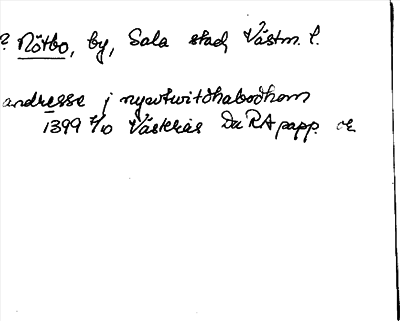 ? Nötbo, by, Sala stad, Västm. l.
andresse j nyawtwitdhabodhom
1399 2/10 Västerås Da RA papp. or